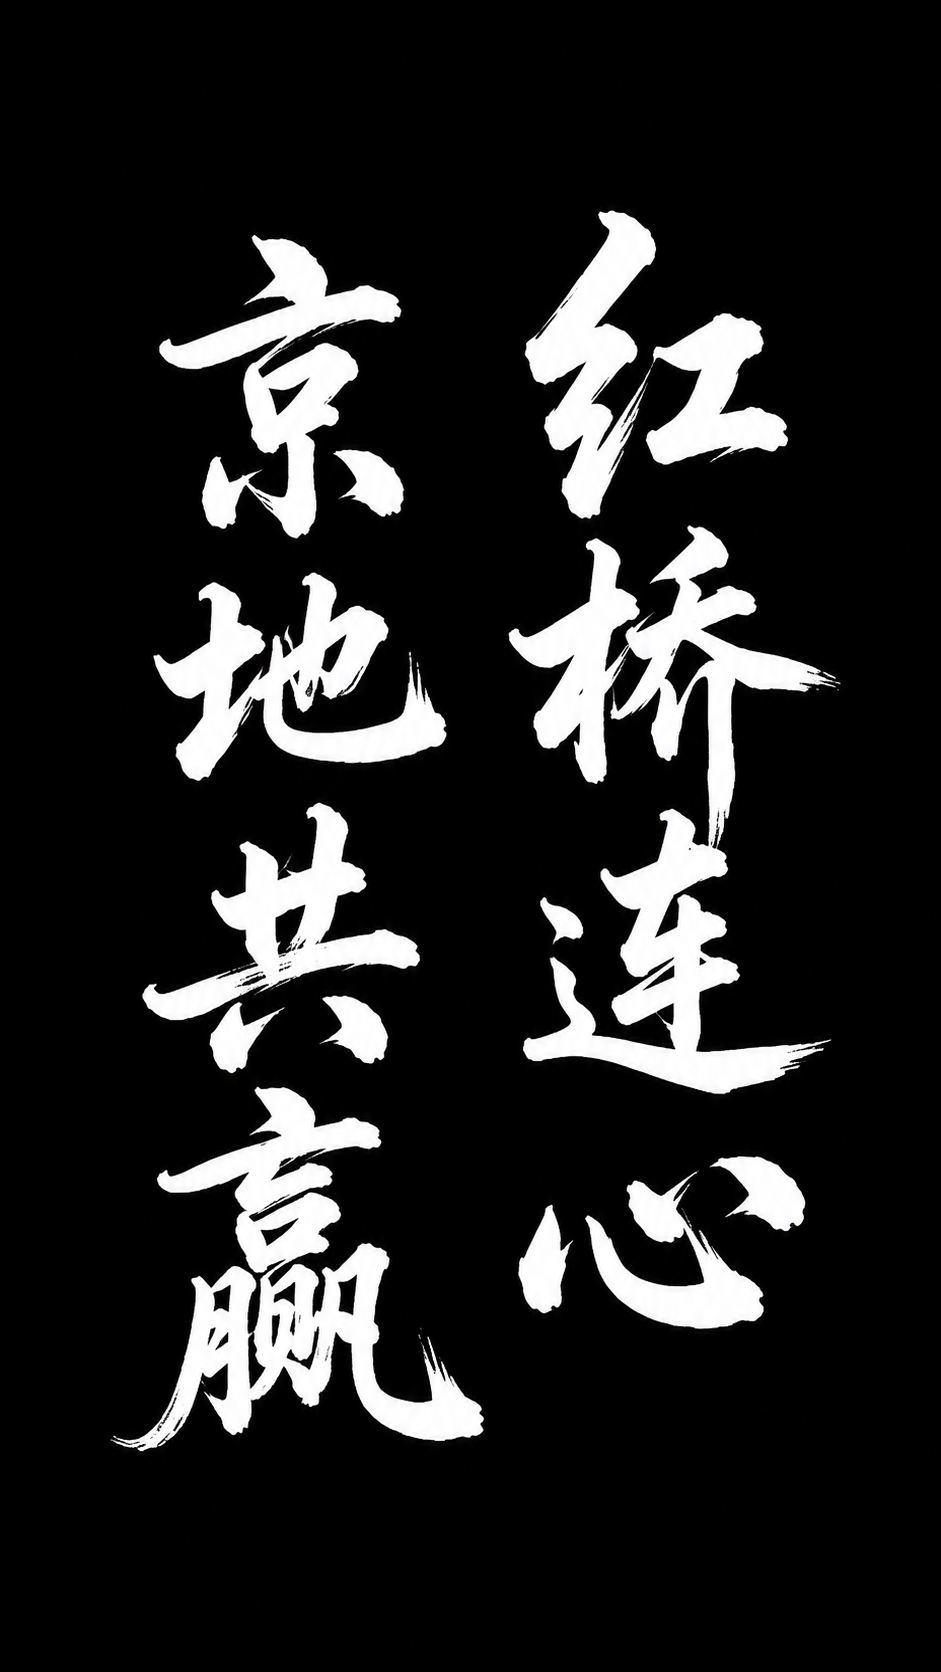 红桥连心
京地共赢